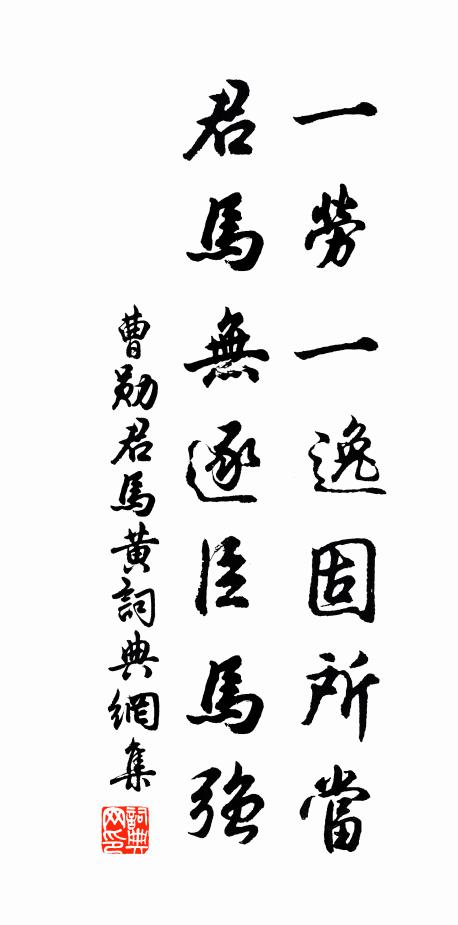 一勞一逸固所當
君馬無逐臣馬強
曹勛君馬黃詞典網集
詞典网印